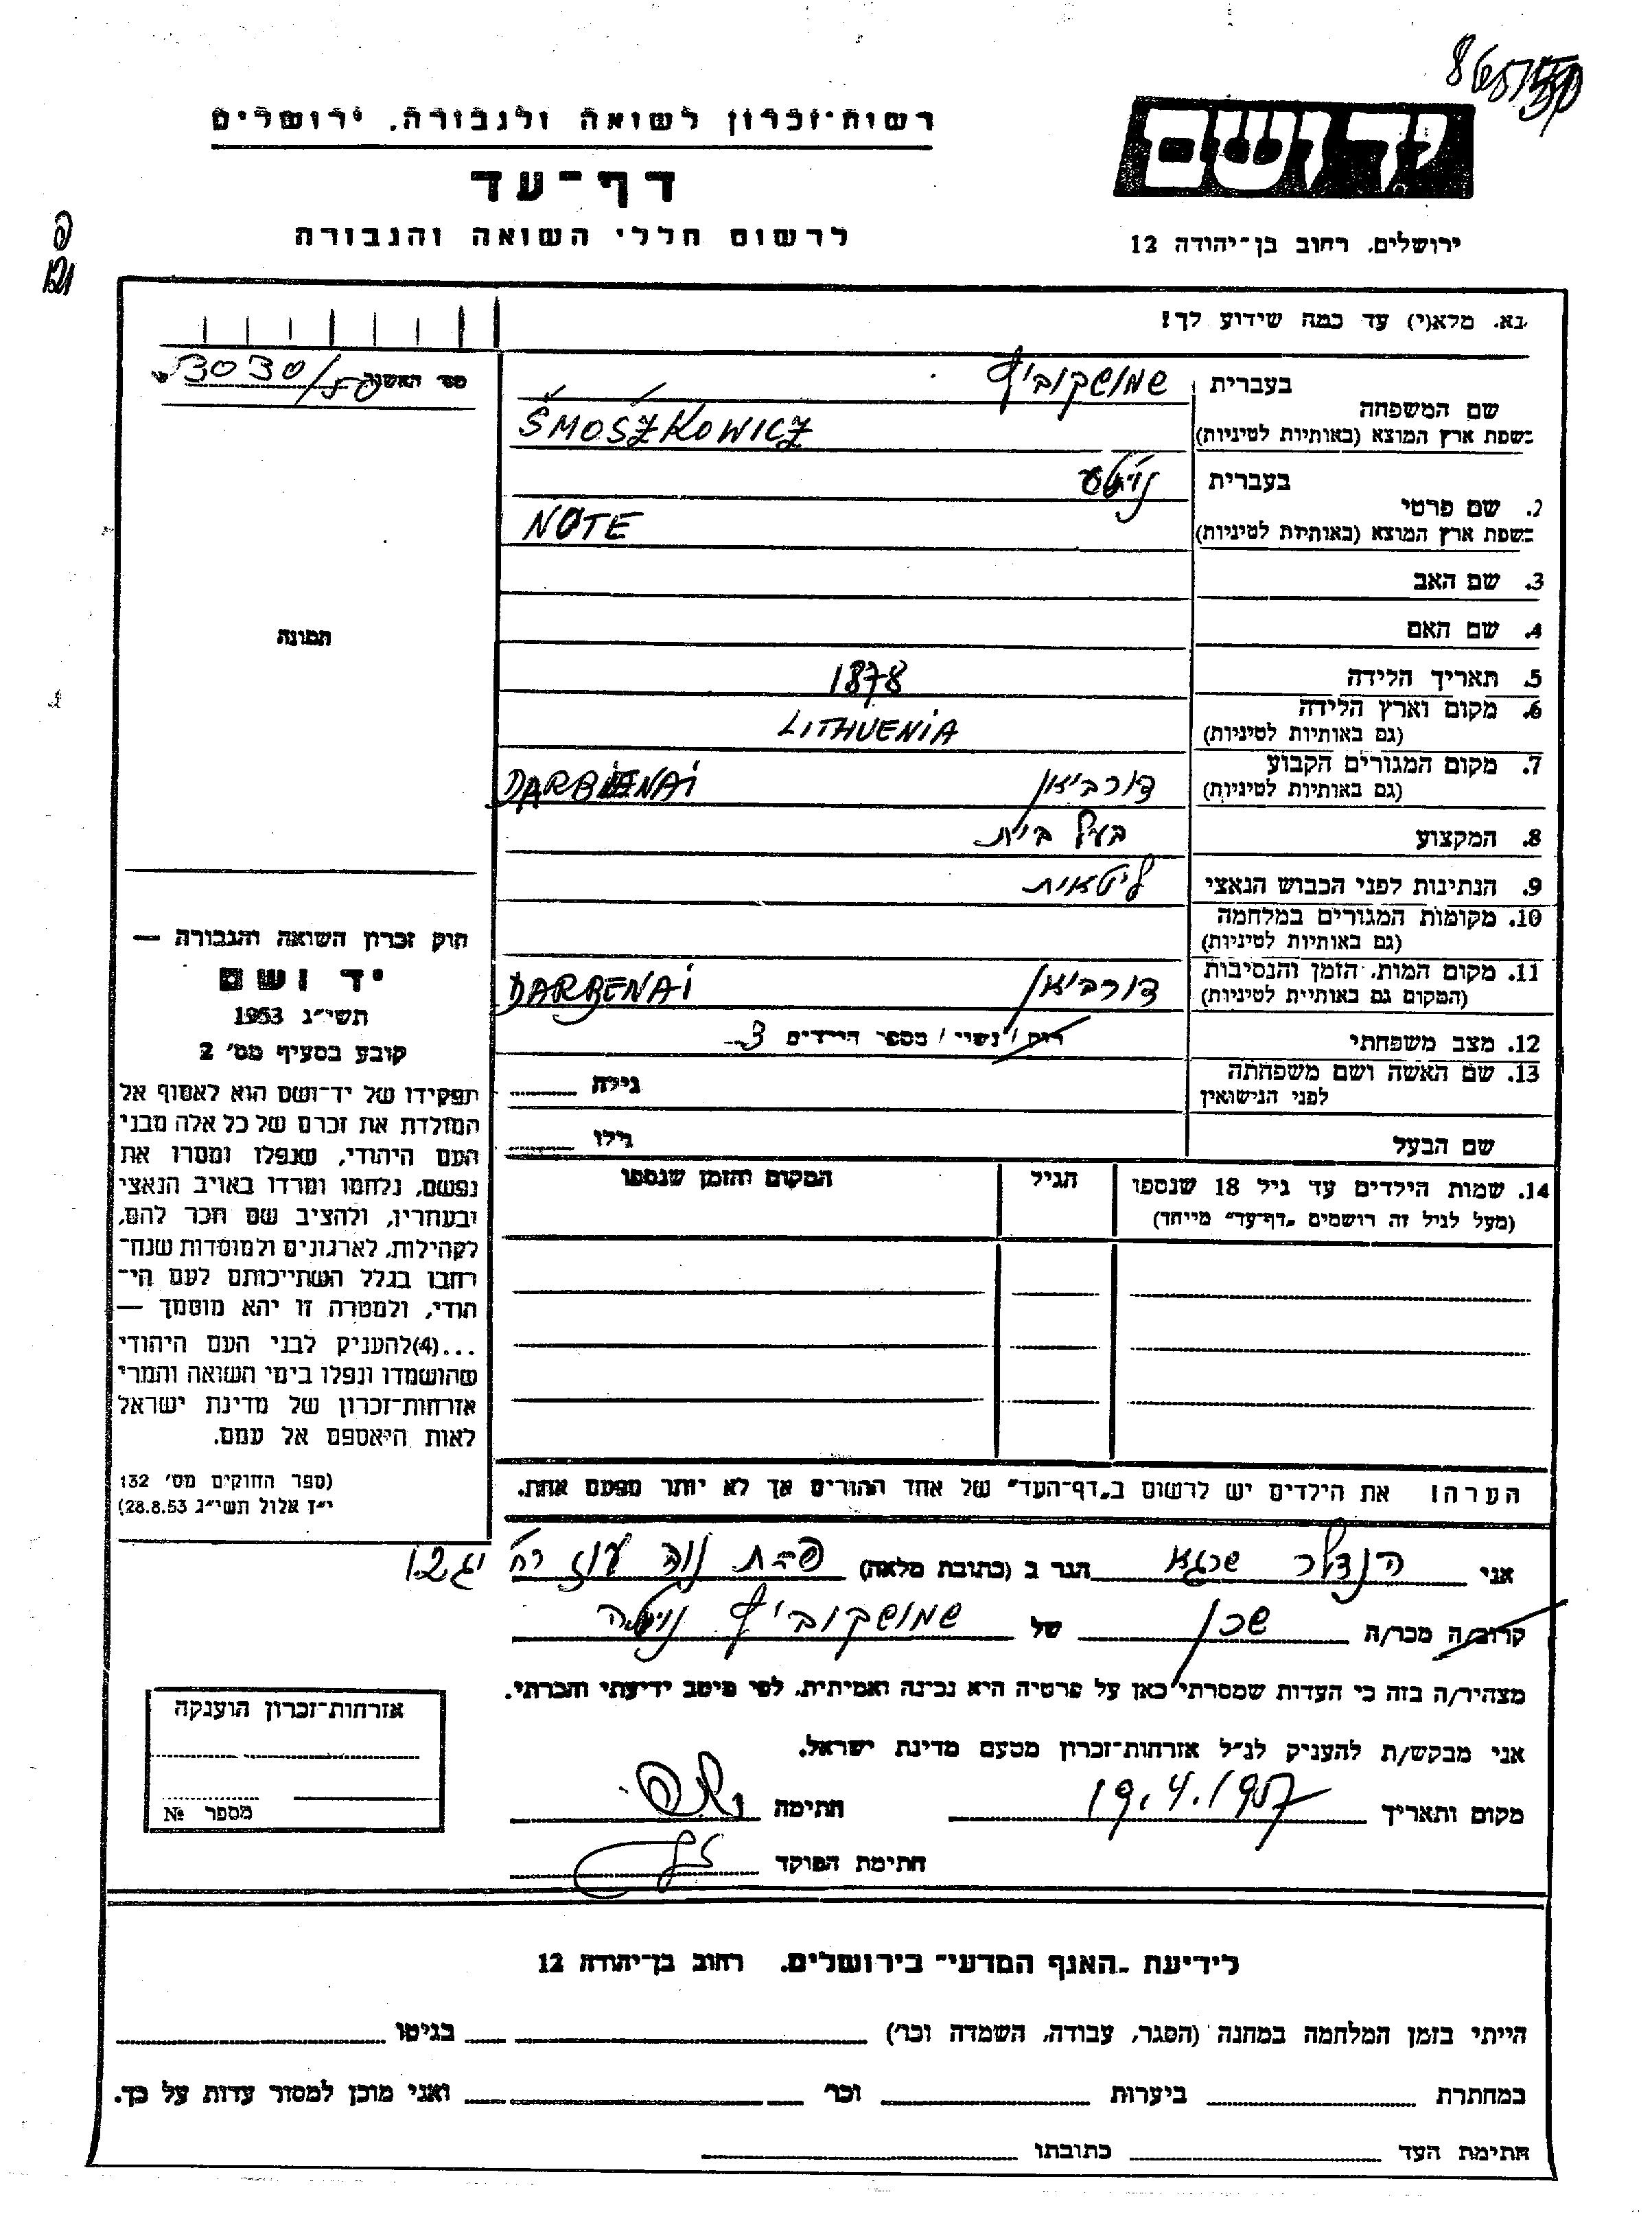 רשות-זכרון לשואה ולגבורה. ירושלים
דף-עד
לרשום חללי השואה והגבורה
יד ושם
ירושלים. רחוב בן-יהודה 12
נא. מלא(י) עד כמה שידוע לך!
בעברית שמושקוביץ
שם המשפחה
בשפת ארץ המוצא (באותיות לטיניות) ŚMOŚZKOWICZ
בעברית
2. שם פרטי
בשפת ארץ המוצא (באותיות לטיניות) NOTE
3. שם האב
4. שם האם
5. תאריך הלידה 1878
6. מקום וארץ הלידה LITHUENIA
(גם באותיות לטיניות)
7. מקום המגורים הקבוע דורביאן DARBENAI
(גם באותיות לטיניות)
8. המקצוע בעל בית
9. הנתינות לפני הכבוש הנאצי ליטאית
10. מקומות המגורים במלחמה
(גם באותיות לטיניות)
11. מקום המות. הזמן והנסיבות דורביאן DARBENAI
(המקום גם באותיות לטיניות)
12. מצב משפחתי רוק / נשוי / מספר הילדים 3
13. שם האשה ושם משפחתה גילה
לפני הנישואין
שם הבעל גילו
14. שמות הילדים עד גיל 18 שנספו הגיל המקום והזמן שנספו
(מעל לגיל זה רושמים „דף-עד" מייחד)
הערה! את הילדים יש לרשום ב„דף-העד" של אחד ההורים אך לא יותר מפעם אחת.
מס' האשה 3030/50
תמונה
חוק זכרון השואה והגבורה —
יד ושם
תשי"ג 1953
קובע בסעיף מס' 2
תפקידו של יד-ושם הוא לאסוף אל
המולדת את זכרם של כל אלה מבני
העם היהודי, שנפלו ומסרו את
נפשם, נלחמו ומרדו באויב הנאצי
ובעוזריו, ולהציב שם וזכר להם,
לקהילות, לארגונים ולמוסדות שנח-
רבו בגלל השתייכותם לעם הי-
הודי, ולמטרה זו יהא מוסמך —
...(4)להעניק לבני העם היהודי
שהושמדו ונפלו בימי השואה והמרי
אזרחות-זכרון של מדינת ישראל
לאות היאספם אל עמם.
(ספר החוקים מס' 132
י"ז אלול תשי"ג 28.8.53)
אני הנדלר שרגא הגר ב (כתובת מלאה) פ״ת נוה עוז רח'
קרוב/ה מכר/ה שכן של שמושקוביץ
מצהיר/ה בזה כי העדות שמסרתי כאן על פרטיה היא נכונה ואמיתית. לפי מיטב ידיעתי והכרתי.
אני מבקש/ת להעניק לנ"ל אזרחות-זכרון מטעם מדינת ישראל.
מקום ותאריך 19.4.1957 חתימה
חתימת הפוקד
אזרחות-זכרון הוענקה
מספר №
לידיעת „האגף המדעי" בירושלים. רחוב בן-יהודה 12
הייתי בזמן המלחמה במחנה (הסגר, עבודה, השמדה וכו') בגיטו
במחתרת ביערות וכו' ואני מוכן למסור עדות על כך.
חתימת העד כתובתו